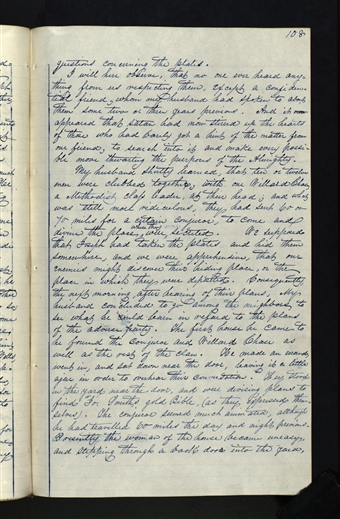 108
questions concerning the plates.
I will here observe, that no one ever heard any-
thing from us respecting them, except a confiden-
tial friend, whom my husband had spoken to about
them some two or three years previous. And it
appeared that satan had now stirred up the hearts
of those who had barely got a hint of the matter from
our friend, to search into it and make every possi-
ble move thwarting the purposes of the Almighty.
My husband shortly learned, that ten or twelve
men were clubbed together, with one Willard Chase,
a Methodist class leader, at their head; and what
was still more rediculous, they had sent 60 or
70 miles for a certain conjuror, to come and
divine the place, where they were secreted. We supposed
that Joseph had taken the plates and hid them
somewhere, and we were apprehensive, that our
enemies might discover their hiding place, or the
place in which they were deposited. Consequently
the next morning, after hearing of their plans, My
husband concluded to go among the neighbors, to
see what he could learn in regard to the plans
of the adverse party. The first house he came to
he found the Conjuror and Willard Chase as
well as the rest of the clan. He made an errand,
went in, and sat down near the door, leaving it a little
ajar in order to overhear their conversation. They stood
in the yard near the door, and were devising plans to
find Joe Smith's gold bible, (as they expressed them-
selves). The conjuror seemed much animated, although
he had travelled 60 miles the day and night previous.
Presently the woman of the house became uneasy,
and stepping through a back door into the yard,